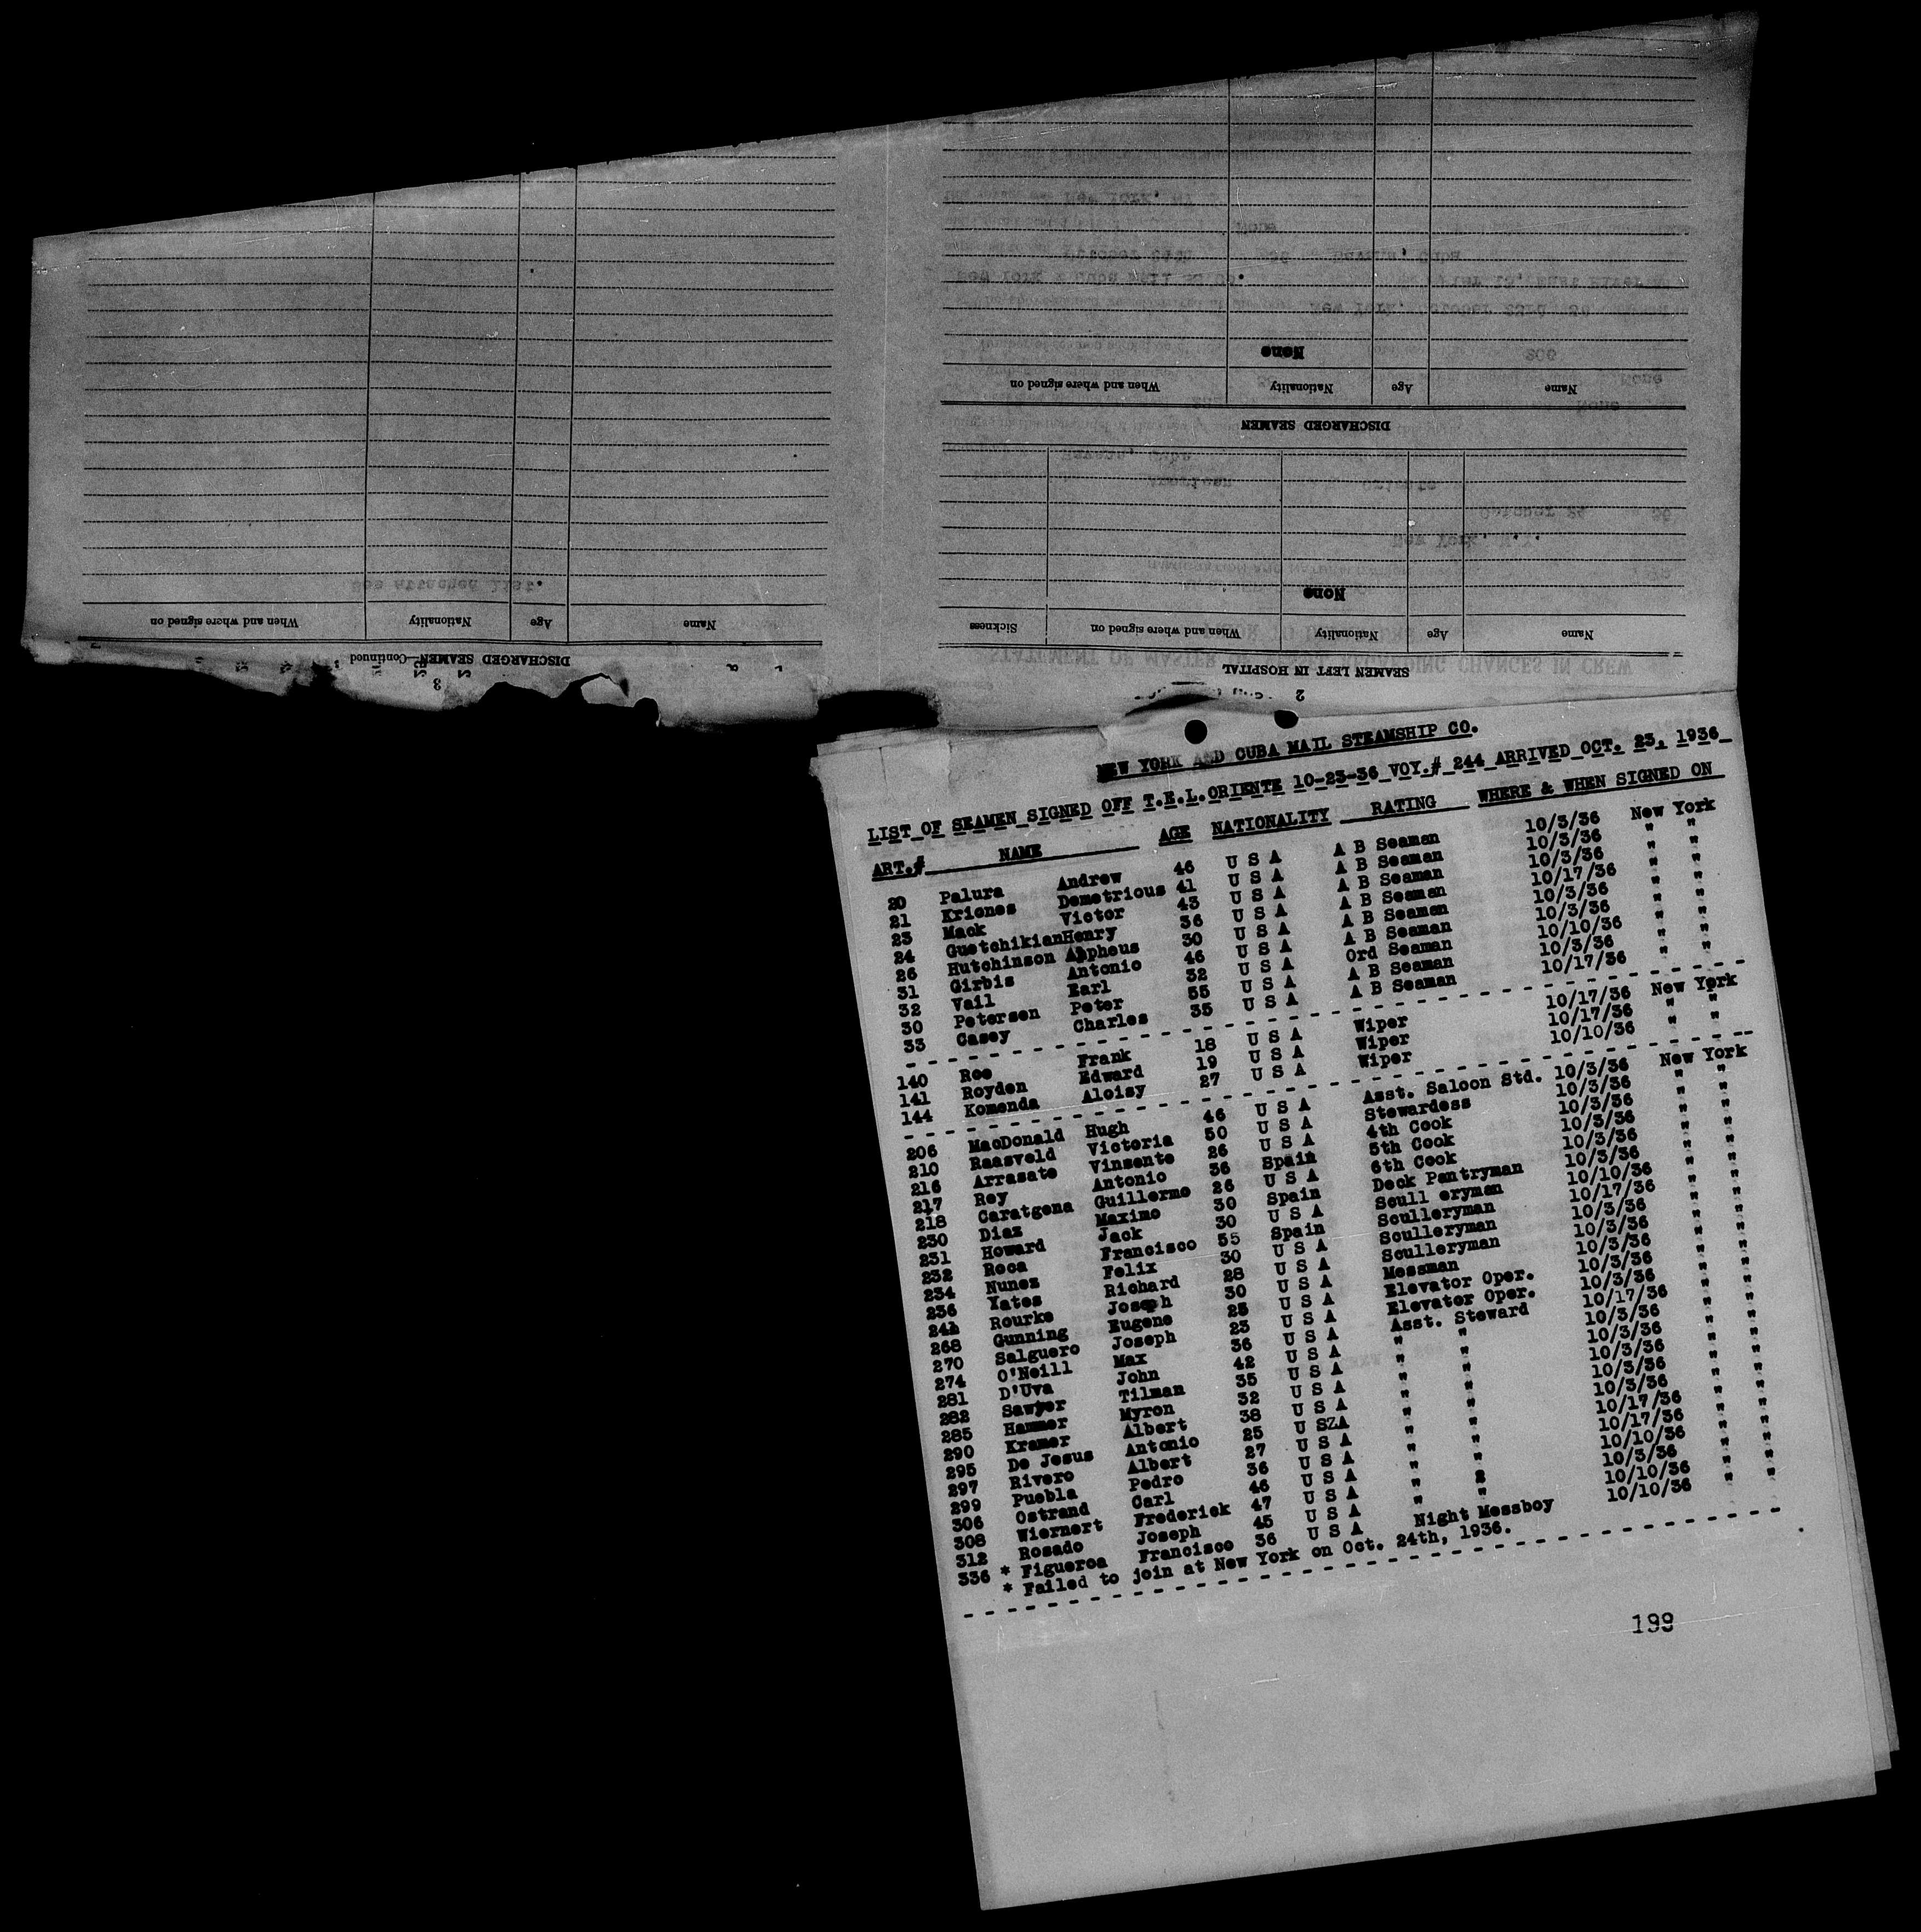 3
DISCHARGED SEAMEN—Continued
Name Age Nationality When and where signed on
See attached list.
2
SEAMEN LEFT IN HOSPITAL
Name Age Nationality When and where signed on Sickness
None
DISCHARGED SEAMEN
Name Age Nationality When and where signed on
None
NEW YORK AND CUBA MAIL STEAMSHIP CO.
LIST OF SEAMEN SIGNED OFF T.E.L.ORIENTE 10-23-36 VOY.# 244 ARRIVED OCT. 23, 1936
ART.# NAME AGE NATIONALITY RATING WHERE & WHEN SIGNED ON
20 Palura Andrew 46 U S A A B Seaman 10/3/36 New York
21 Kriones Demetrious 41 U S A A B Seaman 10/3/36 " "
23 Mack Victor 43 U S A A B Seaman 10/3/36 " "
24 GuetchikianHenry 36 U S A A B Seaman 10/17/36 " "
26 Hutchinson Alpheus 30 U S A A B Seaman 10/3/36 " "
31 Girbis Antonio 46 U S A A B Seaman 10/3/36 " "
32 Vail Earl 32 U S A Ord Seaman 10/10/36 " "
30 Petersen Peter 55 U S A A B Seaman 10/3/36 " "
33 Casey Charles 35 U S A A B Seaman 10/17/36 " "
140 Roe Frank 18 U S A Wiper 10/17/36 New York
141 Royden Edward 19 U S A Wiper 10/17/36 " "
144 Komenda Aloisy 27 U S A Wiper 10/10/36 " "
206 MacDonald Hugh 46 U S A Asst. Saloon Std. 10/3/36 New York
210 Raasveld Victoria 50 U S A Stewardess 10/3/36 " "
216 Arrasate Vinsente 26 U S A 4th Cook 10/3/36 " "
217 Rey Antonio 36 Spain 5th Cook 10/3/36 " "
218 Caratgena Guillermo 26 U S A 6th Cook 10/3/36 " "
230 Diaz Maximo 30 Spain Deck Pantryman 10/3/36 " "
231 Howard Jack 30 U S A Scull eryman 10/10/36 " "
232 Roca Francisco 55 Spain Sculleryman 10/17/36 " "
234 Nunez Felix 30 U S A Sculleryman 10/3/36 " "
236 Yates Richard 28 U S A Sculleryman 10/3/36 " "
241 Rourke Joseph 30 U S A Messman 10/3/36 " "
268 Gunning Eugene 25 U S A Elevator Oper. 10/3/36 " "
270 Salguero Joseph 23 U S A Elevator Oper. 10/3/36 " "
274 O'Neill Max 36 U S A Asst. Steward 10/17/36 " "
281 D'Uva John 42 U S A " " 10/3/36 " "
282 Sawyer Tilman 35 U S A " " 10/3/36 " "
285 Hammer Myron 32 U S A " " 10/3/36 " "
290 Kramer Albert 38 U S A " " 10/3/36 " "
295 De Jesus Antonio 25 U SZA " " 10/3/36 " "
297 Rivero Albert 27 U S A " " 10/17/36 " "
299 Puebla Pedro 36 U S A " " 10/17/36 " "
306 Ostrand Carl 46 U S A " " 10/10/36 " "
308 Wiernert Frederick 47 U S A " " 10/3/36 " "
312 Rosado Joseph 45 U S A " " 10/10/36 " "
336 * Figueroa Francisco 36 U S A Night Messboy 10/10/36 " "
* Failed to join at New York on Oct. 24th, 1936.
199